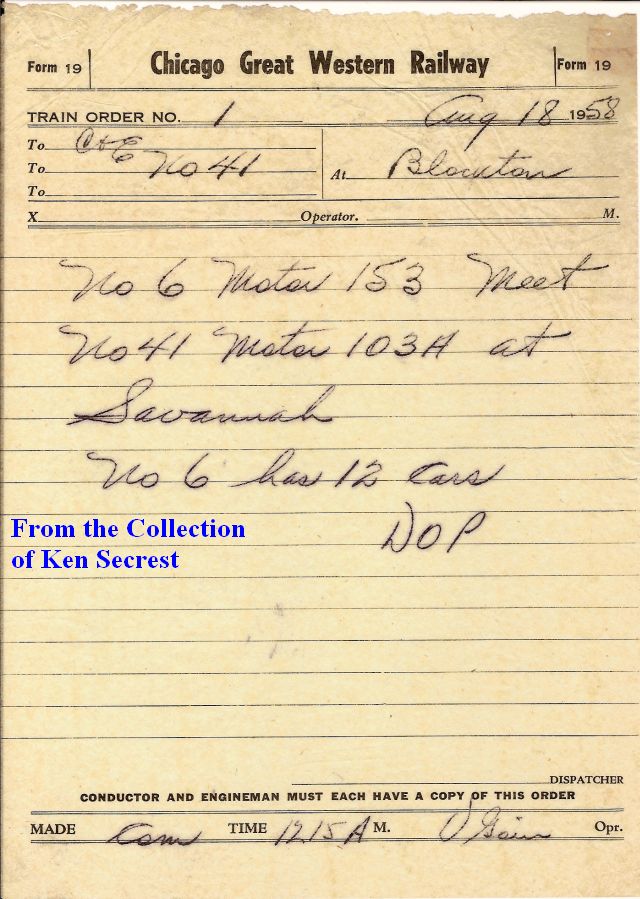 Form 19
Chicago Great Western Railway
Form 19
TRAIN ORDER NO. 1
Aug 18 1958
To C+E
To No 41
At Blockton
To
X Operator. M.
No 6 Motor 153 Meet
No 41 Motor 103A at
Savannah
No 6 has 12 cars
DOP
From the Collection
of Ken Secrest
DISPATCHER
CONDUCTOR AND ENGINEMAN MUST EACH HAVE A COPY OF THIS ORDER
MADE Com TIME 1215 A M. Opr.